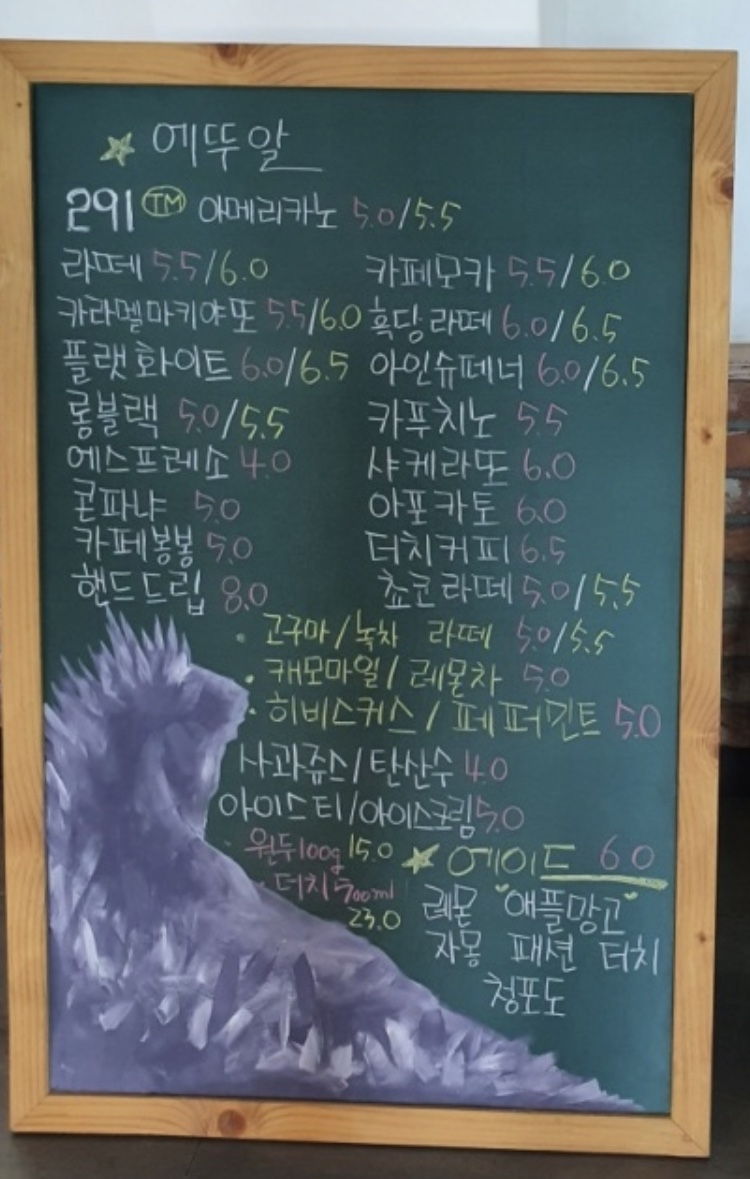 에뚜알
291 TM 아메리카노 5.0/5.5
라떼 5.5/6.0 카페모카 5.5/6.0
카라멜마키야또 5.5/6.0 흑당라떼 6.0/6.5
플랫화이트 6.0/6.5 아인슈페너 6.0/6.5
롱블랙 5.0/5.5 카푸치노 5.5
에스프레소 4.0 샤케라또 6.0
콘파냐 5.0 아포카토 6.0
카페봉봉 5.0 더치커피 6.5
핸드드립 8.0 쵸코라떼 5.0/5.5
· 고구마/녹차 라떼 5.0/5.5
· 캐모마일/레몬차 5.0
· 히비스커스/페퍼민트 5.0
사과쥬스/탄산수 4.0
아이스티/아이스크림 5.0
· 원두100g 15.0
· 더치500ml
23.0
에이드 6.0
레몬 "애플망고"
자몽 패션 더치
청포도